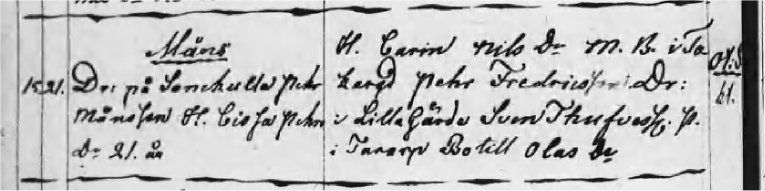 Måns
15. 21. Dr: på Sonekulla Pehr
Månsson H. Cissa Pehrs
Dr 21. år
H. Carin Nils Dr M. B. i To
Pehr Fredricsson Dr:
i Lilla Gärde Sven Thufvess P.
i Tararp Botill Olas Dr
61.